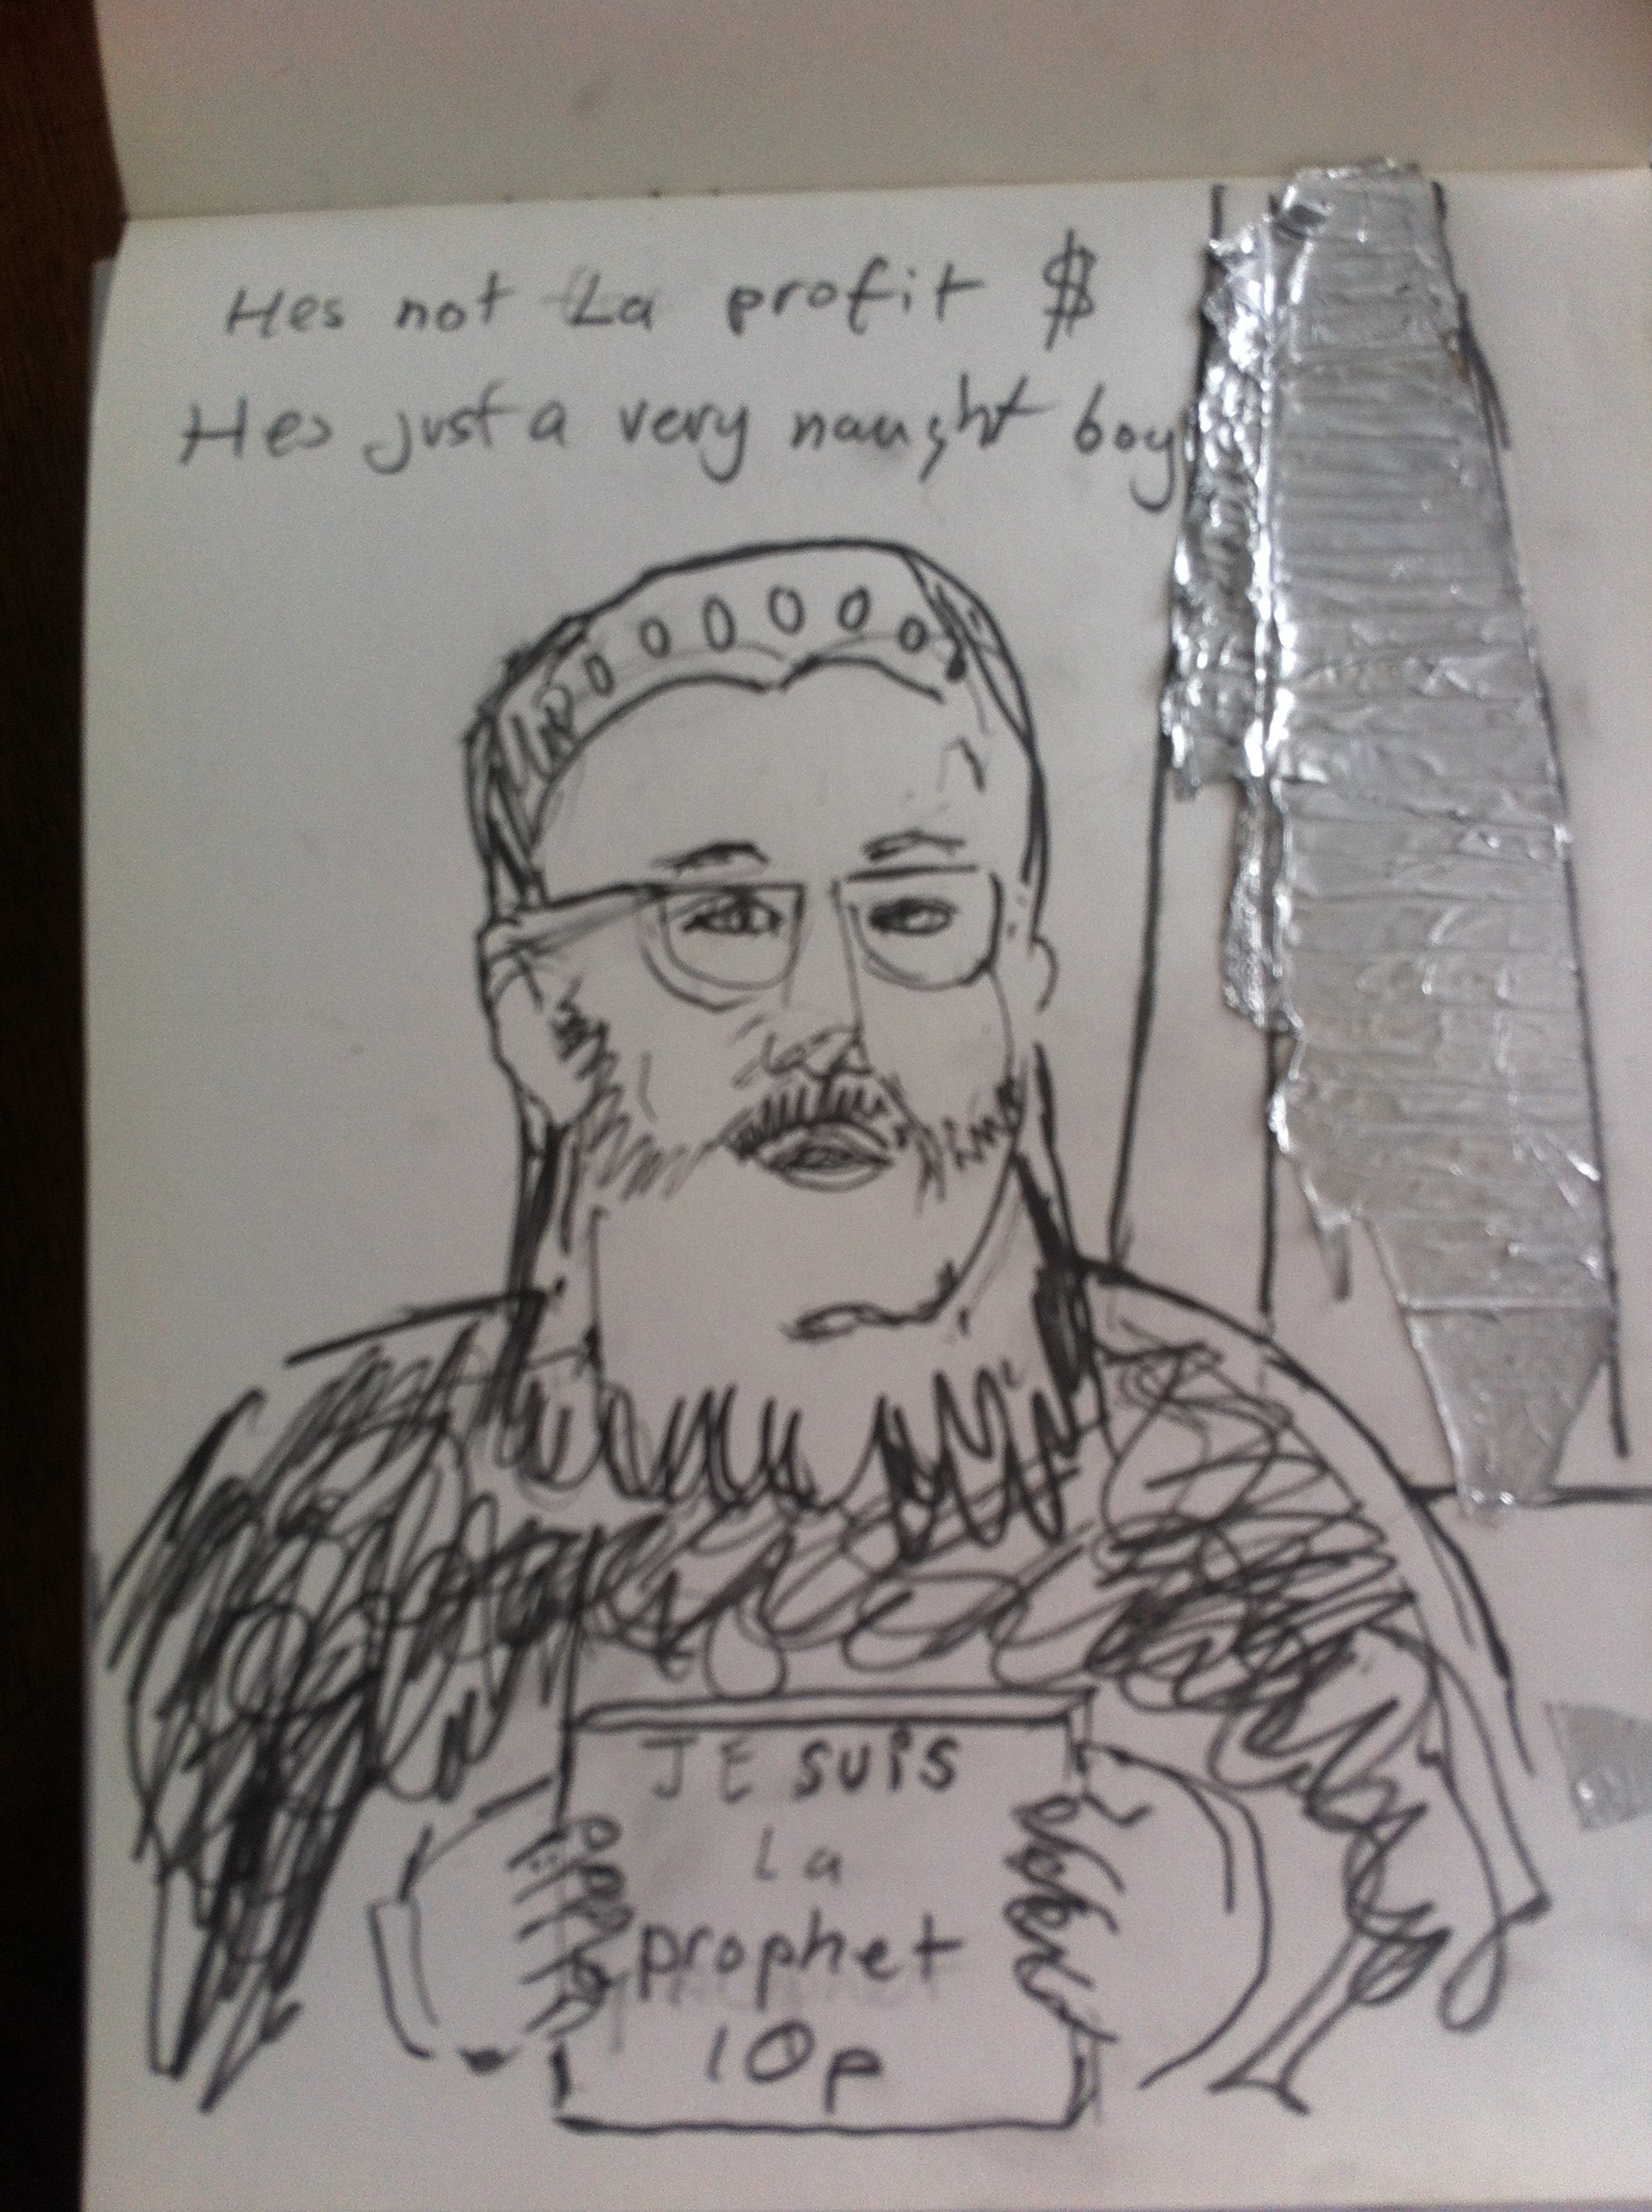 Hes not La profit $
Hes just a very naught boy
JE SUiS
La
prophet
10p